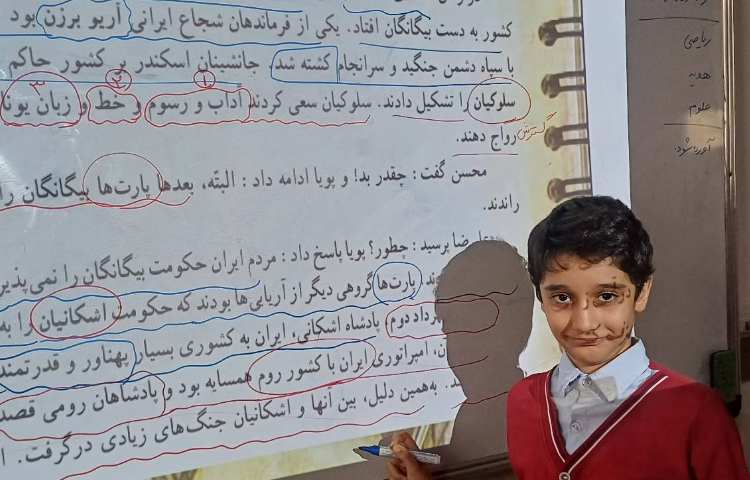 کشور به دست بیگانگان افتاد. یکی از فرماندهان شجاع ایرانی آریو برزن بود
با سپاه دشمن جنگید و سرانجام کشته شد. جانشینان اسکندر بر کشور حاکم
۱ ۲ ۳
سلوکیان را تشکیل دادند. سلوکیان سعی کردند آداب و رسوم و خط و زبان یونا
گسترش
رواج دهند.
محسن گفت : چقدر بد! و پویا ادامه داد : البتّه، بعدها پارت‌ها بیگانگان را
راندند.
رضا پرسید : چطور؟ پویا پاسخ داد : مردم ایران حکومت بیگانگان را نمی‌پذیر
ند پارت‌ها گروهی دیگر از آریایی‌ها بودند که حکومت اشکانیان را به
رداد دوم پادشاه اشکانی، ایران به کشوری بسیار پهناور و قدرتمند
ن، امپراتوری ایران با کشور روم همسایه بود و پادشاهان رومی قصد
د. به‌همین دلیل، بین آنها و اشکانیان جنگ‌های زیادی درگرفت. ا
ریاضی
هدیه
علوم